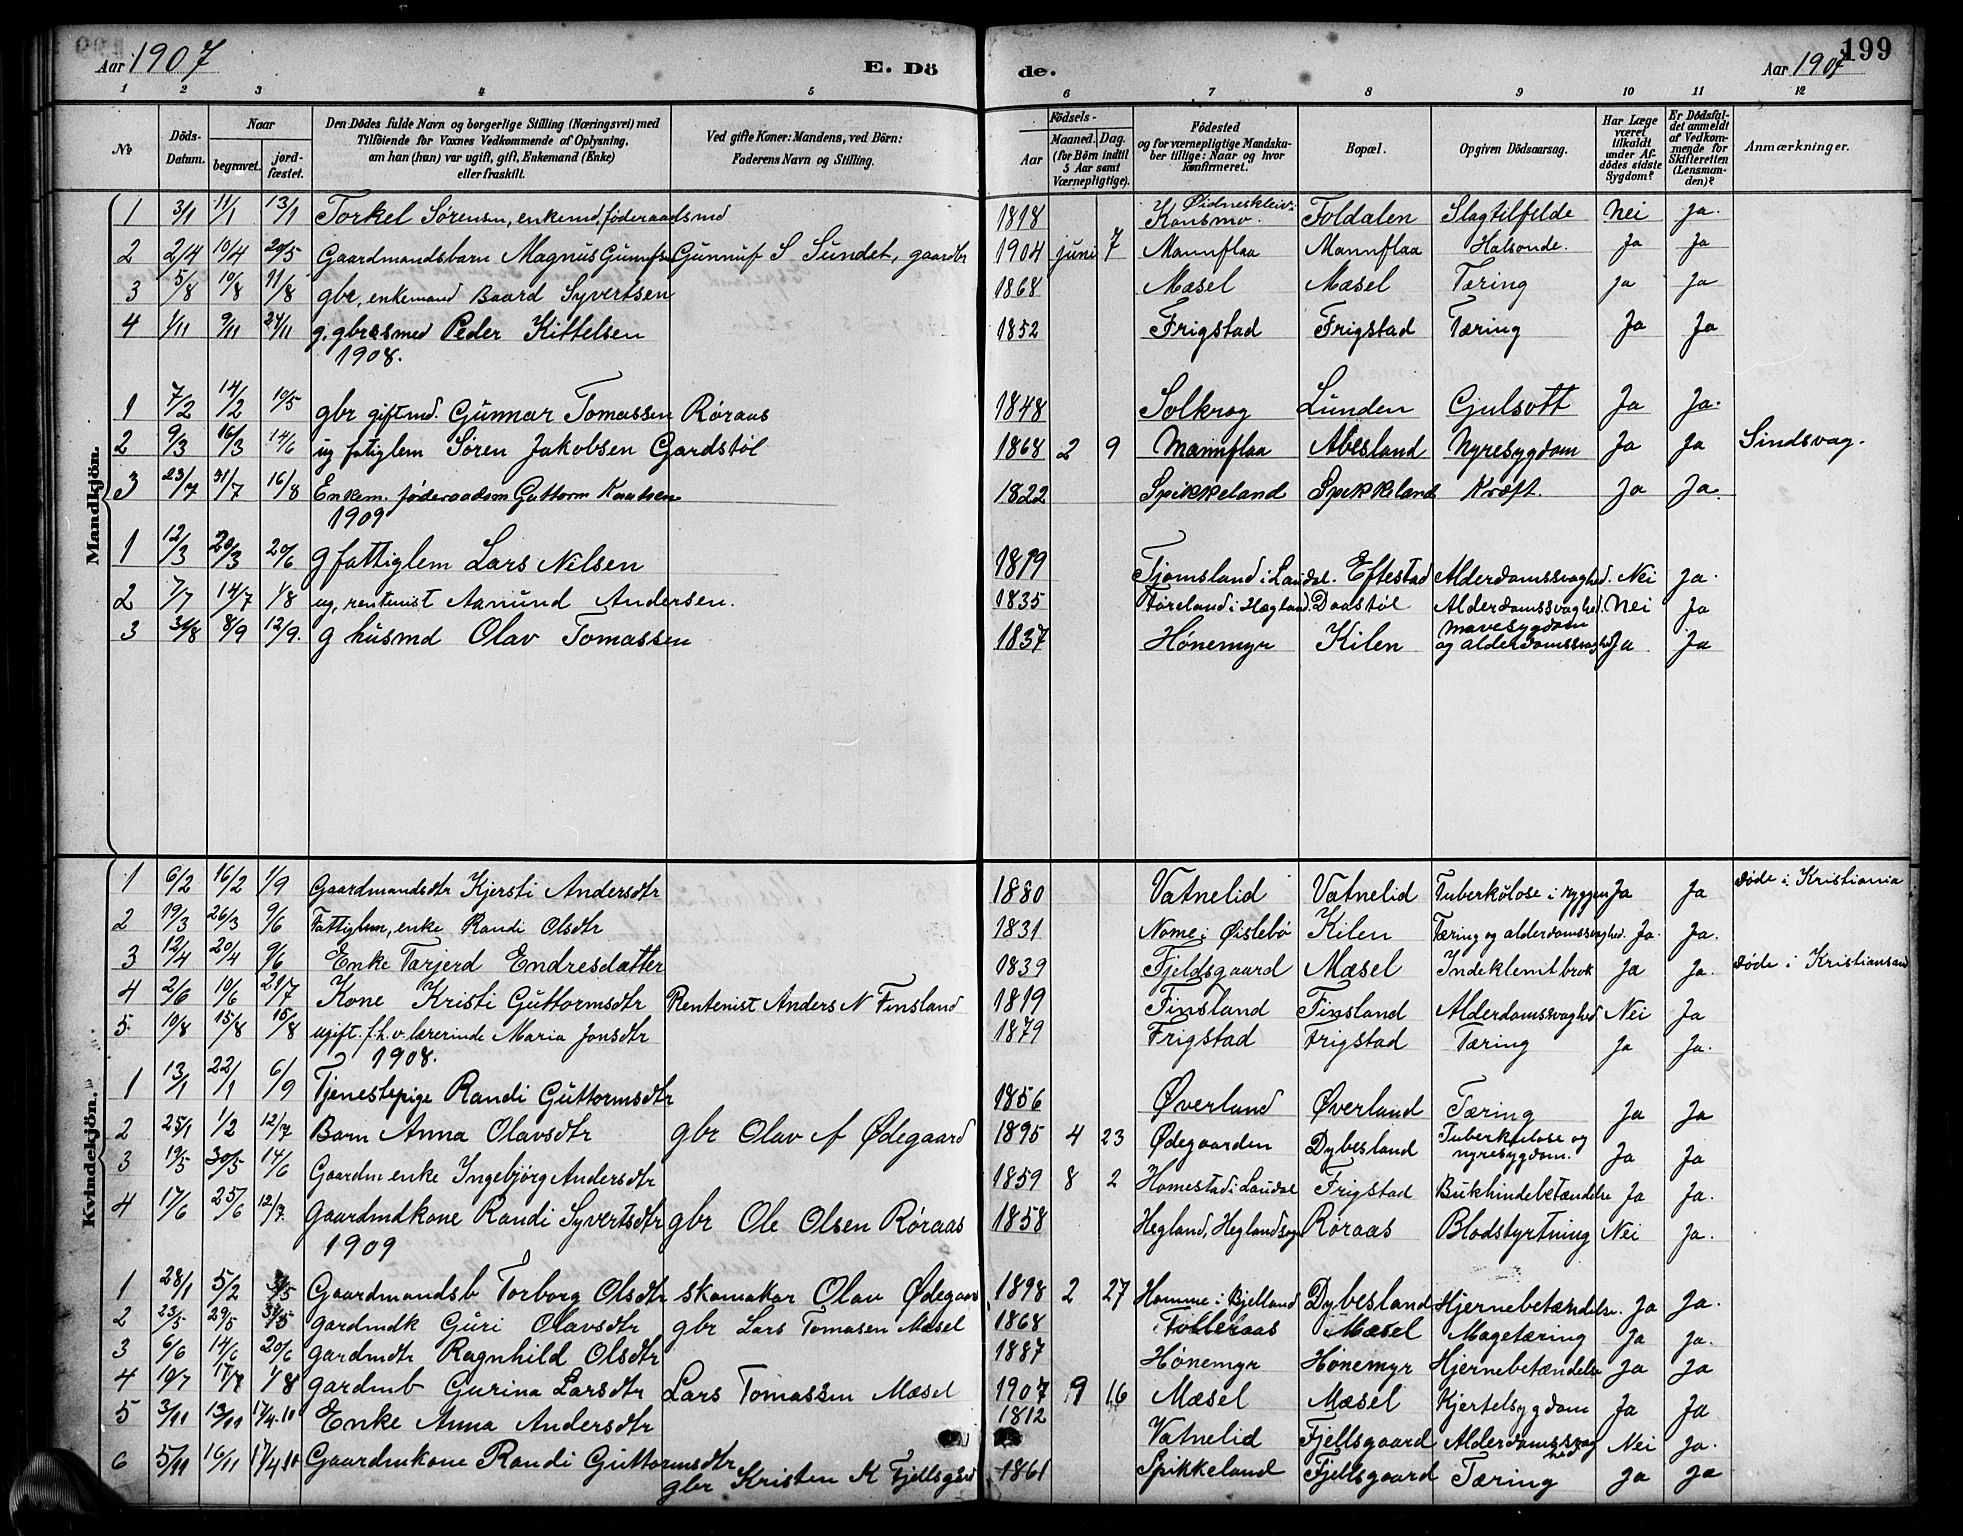 Aar 1907 E. Döde. Aar 1907 199
1 2 3 4 5 6 7 8 9 10 11 12
No Döds-Datum. Naar begravet. jordfæstet. Den Dödes fulde Navn og borgerlige Stilling (Næringsvei) med Tilföiende for Voxnes Vedkommende af Oplysning, om han (hun) var ugift, gift, Enkemand (Enke) eller fraskilt. Ved gifte Koner: Mandens, ved Börn: Faderens Navn og Stilling. Födsels- Aar Maaned. Dag. (for Börn indtil 5 Aar samt Værnepligtige). Födested og for værnepligtige Mandskaber tillige: Naar og hvor konfirmeret. Bopæl. Opgiven Dödsaarsag. Har Læge været tilkaldt under Afdödes sidste Sygdom? Er Dödsfaldet anmeldt af Vedkommende for Skifteretten (Lensmanden)? Anmærkninger.
Mandkjön.
1 3/1 11/1 13/1 Torkel Sörensen, enkemd, föderaadsmd 1818 Øidneskleiv. Konsmo. Foldalen Slagtilfelde Nei Ja.
2 2/4 10/4 20/5 Gaardmandsbarn Magnus Gunnufsen Gunnuf S Sundet, gaardbr 1904 juni 7 Mannflaa Mannflaa Halsonde. Ja Ja
3 5/8 10/8 11/8 gbr, enkemand Baard Syvertsen 1868 Mæsel Mæsel Tæring Ja Ja
4 1/11 9/11 24/11 g. gbr smed Peder Kittelsen 1852 Frigstad Frigstad Tæring Ja Ja
1908.
1 7/2 14/2 10/5 gbr giftmd. Gunnar Tomassen Røraas 1848 Solkrog Lunden Gulsott Ja Ja.
2 9/3 16/3 14/6 ug fatiglem Søren Jakobsen Gardstøl 1868 2 9 Mannflaa Abesland Nyresygdom Ja Ja Sindsvag.
3 23/7 31/7 16/8 Enkem. føderaadsm Guttorm Knutsen 1822 Spikkeland Spikkeland Kræft. Ja Ja.
1909
1 12/3 20/3 20/6 g fattiglem Lars Nilsen 1819 Tjomsland i Laudal. Eftestad Alderdomssvaghed. Nei Ja.
2 7/7 14/7 1/8 ug, rentenist Aanund Andersen. 1835 Føreland i Hægland Daastøl Alderdomssvaghed. Nei Ja
3 31/8 8/9 12/9. g husmd Olav Tomassen 1837 Hønemyr Kilen Mavesygdom og alderdomssvaghed Ja Ja
Kvindekjön.
1 6/2 16/2 1/9 Gaardmandsdtr Kjersti Andersdtr 1880 Vatnelid Vatnelid Tuberkulose i ryggen Ja Ja Døde i Kristiania
2 19/3 26/3 9/6 Fattiglem, enke Randi Olsdtr 1831 Nome i Øislebø Kilen Tæring og alderdomssvaghed. Ja. Ja.
3 12/4 20/4 9/6 Enke Tarjerd Endresdatter 1839 Fjeldsgaard Mæsel Indeklemt brok Ja Ja. Døde i Kristiansand
4 2/6 10/6 29/7 Kone Kristi Guttormsdtr Rentenist Anders N Finsland 1819 Finsland Finsland Alderdomssvaghed Nei Ja
5. 10/8 15/8 15/8 ugift. f.h.v. lærerinde Maria Jonsdtr 1879 Frigstad Frigstad Tæring Ja Ja.
1908.
1 13/1 22/1 6/9 Tjenestepige Randi Guttormsdtr 1856 Øverland Øverland Tæring Ja Ja
2 25/1 1/2 12/7 Barn Anna Olavsdtr gbr Olav A Ødegaard 1895 4 23 Ødegaarden Dybesland Tuberkulose og nyresygdom. Ja Ja
3 19/5 30/5 14/6 Gaardm enke Ingebjörg Andersdtr 1859 8 2 Homestad i Laudal Frigstad Bukhindebetændelse Ja Ja.
4 17/6 25/6 12/7. Gaardmdkone Randi Syvertsdtr gbr Ole Olsen Røraas 1858 Hegland, Heglandsogn Røraas Blodstyrtning Nei Ja.
1909
1 28/1 5/2 31/5 Gaardmandsb Torborg Olsdtr skomakar Olav Ødegaar 1898 2 27 Homme i Bjelland Dybesland Hjernebetændelse. Ja Ja.
2 23/5 29/5 31/5 gardmdk Guri Olavsdtr gbr Lars Tomasen Mæsel 1868 Folleraas Mæsel Magetæring Ja Ja.
3 6/6 14/6 20/6 gardmdtr Ragnhild Olsdtr 1887 Hønemyr Hønemyr Hjernebetændelse Ja Ja
4 10/7 17/7 1/8 gardmb Gurina Larsdtr Lars Tomassen Mæsel 1907 9 16 Mæsel Mæsel Kjertelsygdom Ja Ja
5 3/11 13/11 17/4.10 Enke Anna Andersdtr 1812 Vatnelid Fjellsgaard Alderdomssvaghed Nei Ja.
6 5/11 16/11 17/4.10 Gaardmkone Randi Guttormsdtr gbr Kristen K Fjellsgård 1861 Spikkeland Fjellsgaard Tæring Ja Ja